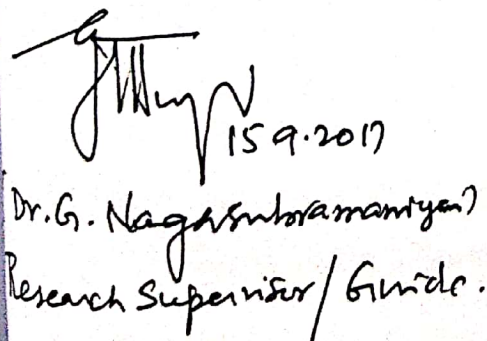 15 9.2017
Dr. G. Nagasubramaniyan)
Research Supervisor/Guide.